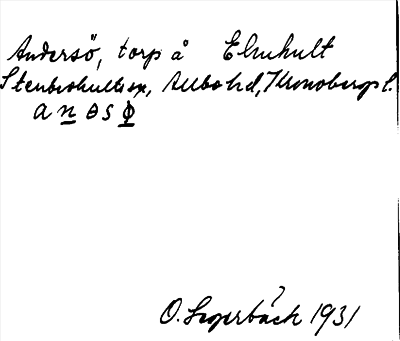 Andersö, torp å Elmhult
Stenbrohults sn, Allbo hd, Kronobergs l.
a n ə s ф
O. Sugerbäck 1931